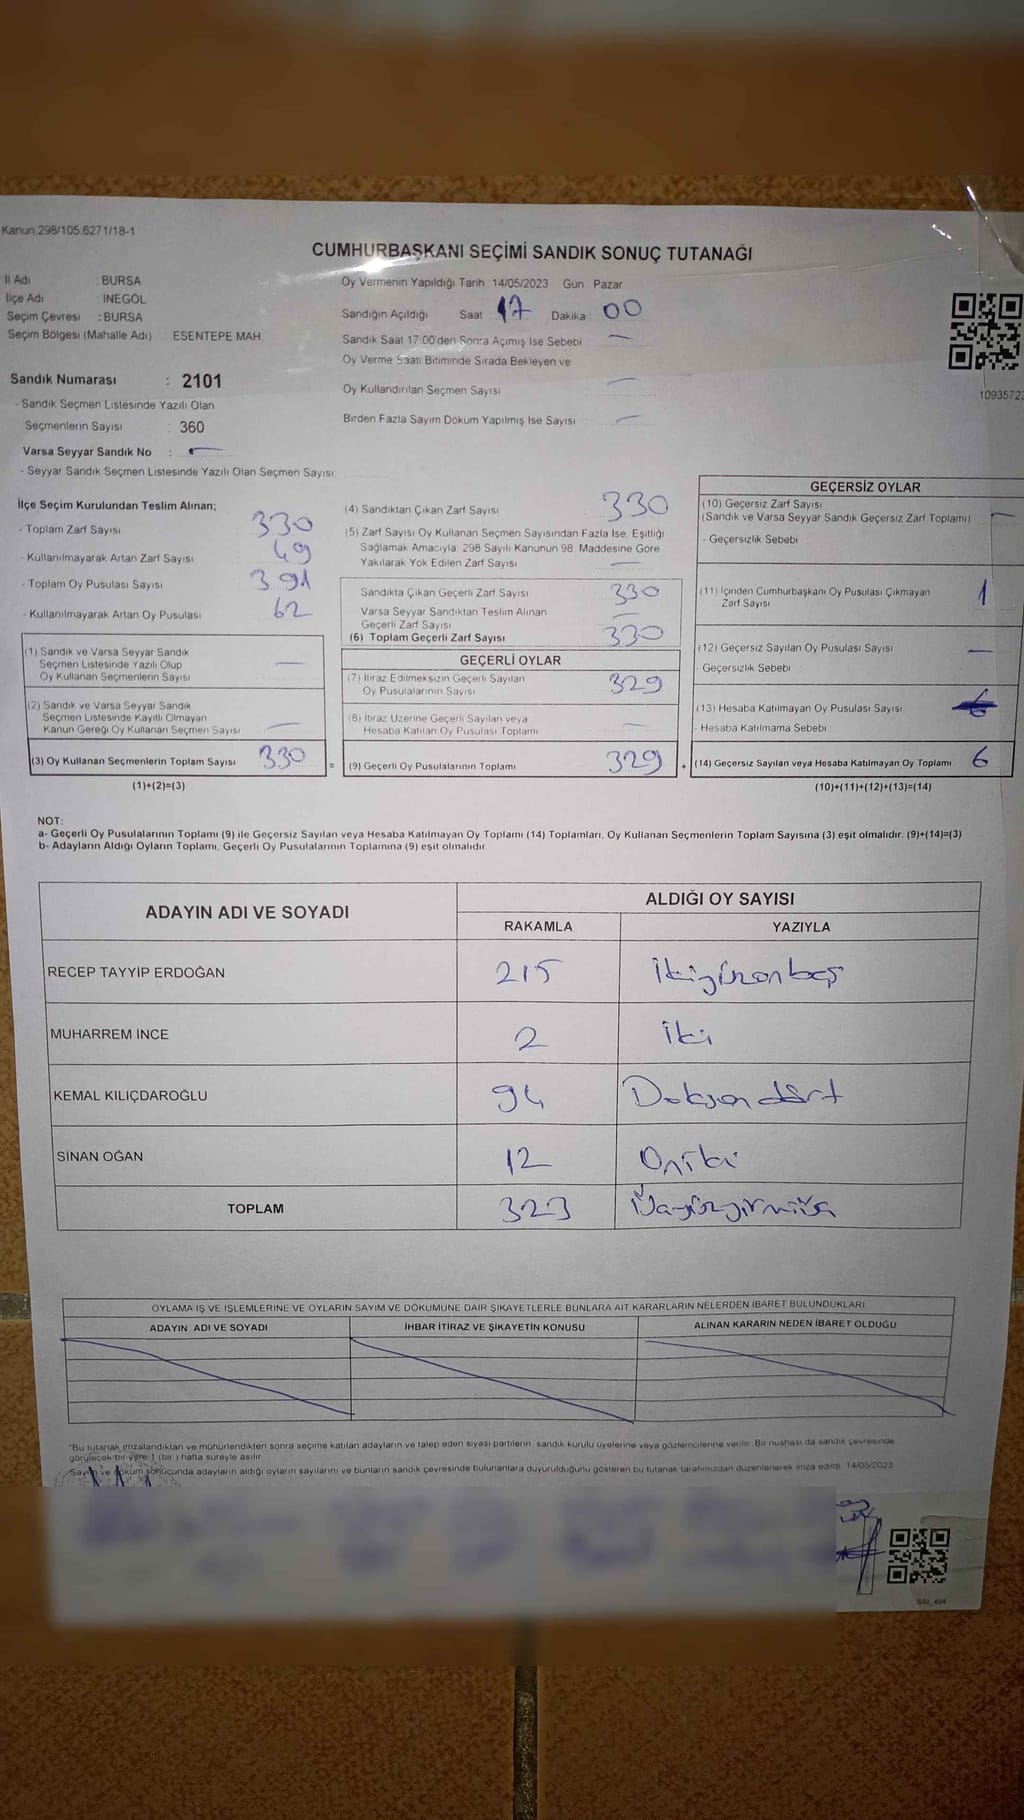 Kanun:298/105,6271/18-1
CUMHURBAŞKANI SEÇİMİ SANDIK SONUÇ TUTANAĞI
İl Adı : BURSA
İlçe Adı : İNEGÖL
Seçim Çevresi : BURSA
Seçim Bölgesi (Mahalle Adı) ESENTEPE MAH.
Sandık Numarası : 2101
- Sandık Seçmen Listesinde Yazılı Olan
Seçmenlerin Sayısı : 360
Varsa Seyyar Sandık No : -
- Seyyar Sandık Seçmen Listesinde Yazılı Olan Seçmen Sayısı:
Oy Vermenin Yapıldığı Tarih 14/05/2023 Gün Pazar
Sandığın Açıldığı Saat 17 Dakika 00
Sandık Saat 17:00'den Sonra Açımış İse Sebebi -
Oy Verme Saati Bitiminde Sırada Bekleyen ve
Oy Kullandırılan Seçmen Sayısı -
Birden Fazla Sayım Döküm Yapılmış İse Sayısı -
10935723
İlçe Seçim Kurulundan Teslim Alınan;
- Toplam Zarf Sayısı 330
- Kullanılmayarak Artan Zarf Sayısı 49
- Toplam Oy Pusulası Sayısı 391
- Kullanılmayarak Artan Oy Pusulası 62
(1) Sandık ve Varsa Seyyar Sandık
Seçmen Listesinde Yazılı Olup
Oy Kullanan Seçmenlerin Sayısı -
(2) Sandık ve Varsa Seyyar Sandık
Seçmen Listesinde Kayıtlı Olmayan
Kanun Gereği Oy Kullanan Seçmen Sayısı -
(3) Oy Kullanan Seçmenlerin Toplam Sayısı 330
(1)+(2)=(3)
(4) Sandıktan Çıkan Zarf Sayısı 330
(5) Zarf Sayısı Oy Kullanan Seçmen Sayısından Fazla İse, Eşitliği
Sağlamak Amacıyla; 298 Sayılı Kanunun 98. Maddesine Göre
Yakılarak Yok Edilen Zarf Sayısı -
Sandıkta Çıkan Geçerli Zarf Sayısı 330
Varsa Seyyar Sandıktan Teslim Alınan
Geçerli Zarf Sayısı -
(6) Toplam Geçerli Zarf Sayısı 330
GEÇERLİ OYLAR
(7) İtiraz Edilmeksizin Geçerli Sayılan
Oy Pusulalarının Sayısı 329
(8) İtiraz Üzerine Geçerli Sayılan veya
Hesaba Katılan Oy Pusulası Toplamı -
= (9) Geçerli Oy Pusulalarının Toplamı 329 +
GEÇERSİZ OYLAR
(10) Geçersiz Zarf Sayısı
(Sandık ve Varsa Seyyar Sandık Geçersiz Zarf Toplamı) -
- Geçersizlik Sebebi
(11) İçinden Cumhurbaşkanı Oy Pusulası Çıkmayan
Zarf Sayısı 1
(12) Geçersiz Sayılan Oy Pusulası Sayısı -
- Geçersizlik Sebebi
(13) Hesaba Katılmayan Oy Pusulası Sayısı
- Hesaba Katılmama Sebebi
(14) Geçersiz Sayılan veya Hesaba Katılmayan Oy Toplamı 6
(10)+(11)+(12)+(13)=(14)
NOT:
a- Geçerli Oy Pusulalarının Toplamı (9) ile Geçersiz Sayılan veya Hesaba Katılmayan Oy Toplamı (14) Toplamları, Oy Kullanan Seçmenlerin Toplam Sayısına (3) eşit olmalıdır. (9)+(14)=(3)
b- Adayların Aldığı Oyların Toplamı, Geçerli Oy Pusulalarının Toplamına (9) eşit olmalıdır.
ADAYIN ADI VE SOYADI ALDIĞI OY SAYISI
RAKAMLA YAZIYLA
RECEP TAYYİP ERDOĞAN 215 İkiyüzonbeş
MUHARREM İNCE 2 İki
KEMAL KILIÇDAROĞLU 94 Doksandört
SİNAN OĞAN 12 Oniki
TOPLAM 323
OYLAMA İŞ VE İŞLEMLERİNE VE OYLARIN SAYIM VE DÖKÜMÜNE DAİR ŞİKAYETLERLE BUNLARA AİT KARARLARIN NELERDEN İBARET BULUNDUKLARI
ADAYIN ADI VE SOYADI İHBAR İTİRAZ VE ŞİKAYETİN KONUSU ALINAN KARARIN NEDEN İBARET OLDUĞU
*Bu tutanak imzalandıktan ve mühürlendikten sonra seçime katılan adayların ve talep eden siyasi partilerin sandık kurulu üyelerine veya gözlemcilerine verilir. Bir nüshası da sandık çevresinde
görülecek bir yere 1 (bir) hafta süreyle asılır.
Sayım ve döküm sonucunda adayların aldığı oyların sayılarını ve bunların sandık çevresinde bulunanlara duyurulduğunu gösteren bu tutanak tarafımızdan düzenlenerek imza edildi. 14/05/2023